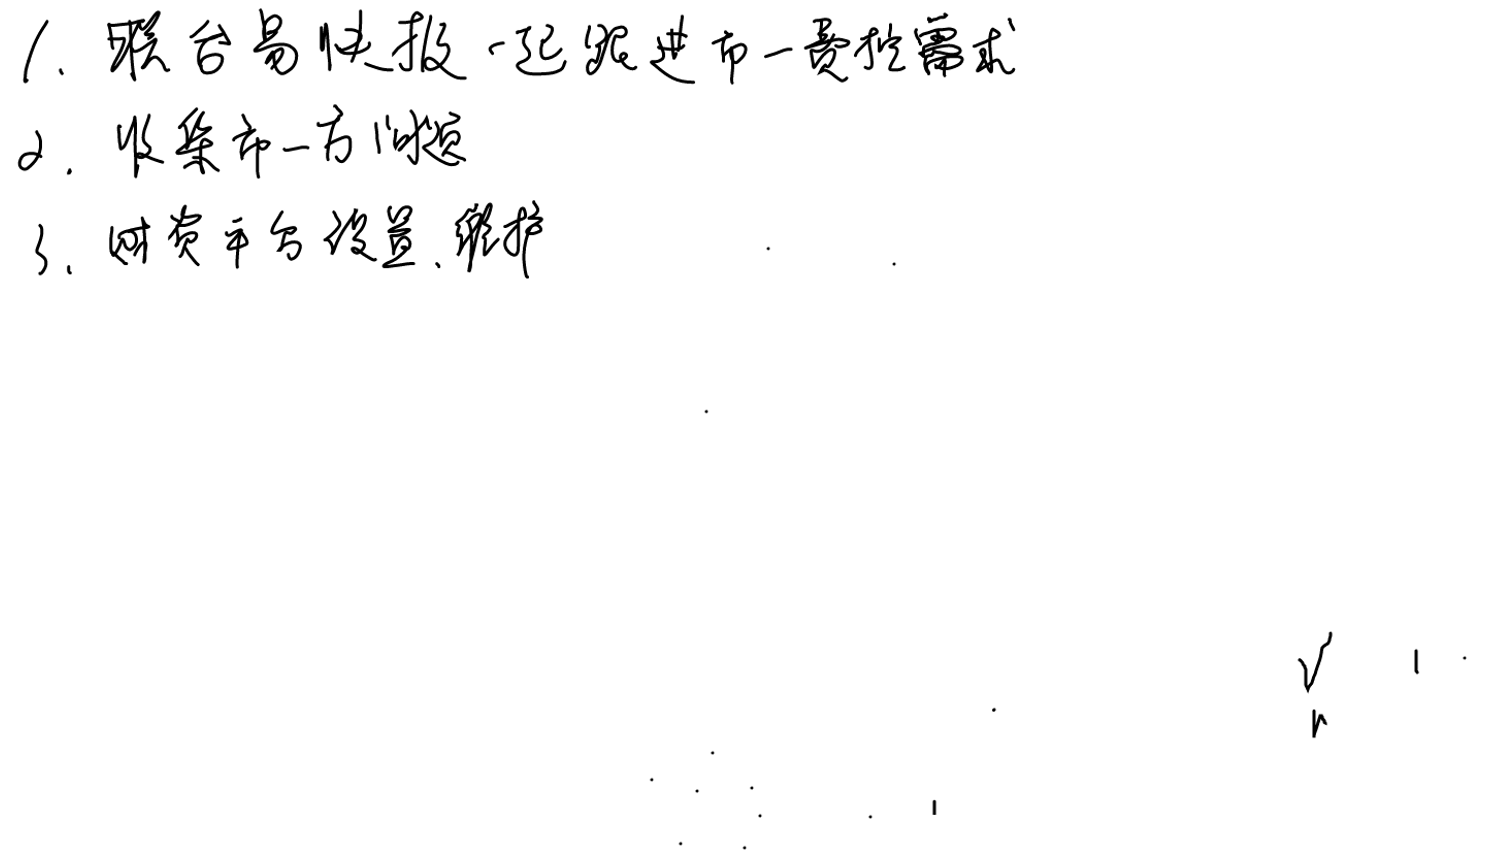 1. 联合易快报一起跟进市一费控需求
2. 收集市一方问题
3. 财资平台设置、维护